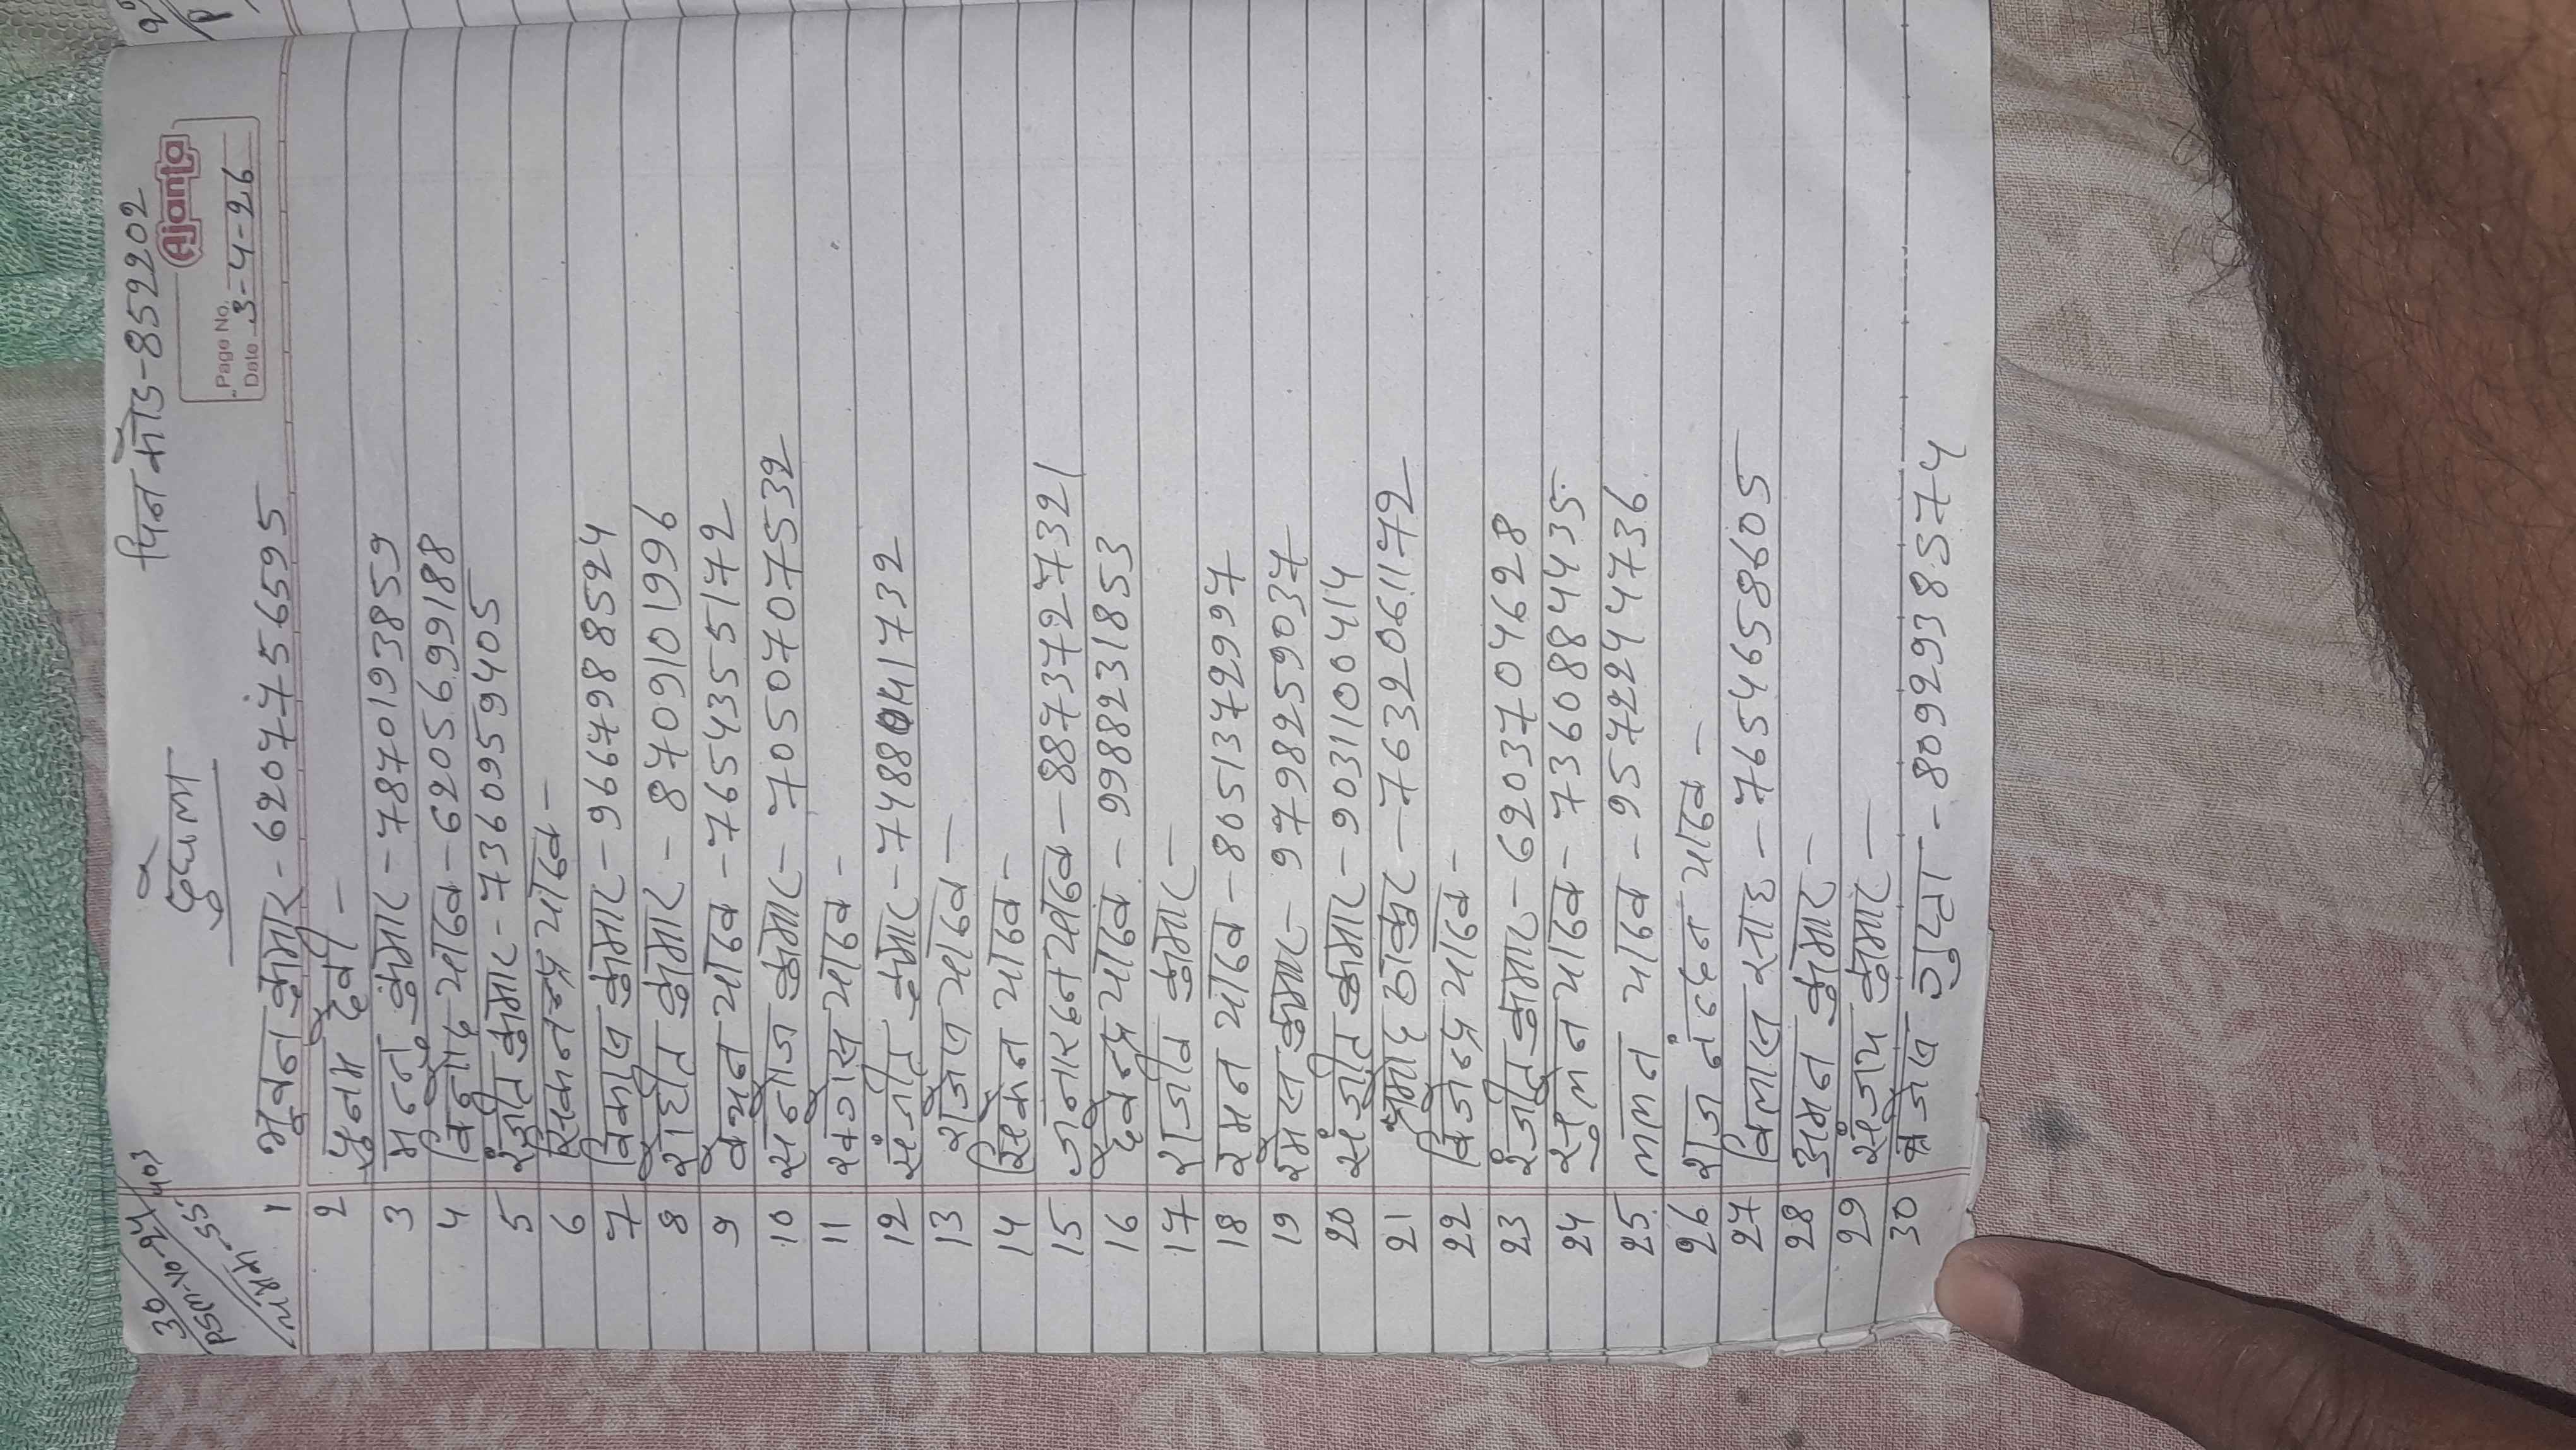 पिन कोड-852202
दुधैला
Ajanta
Page No.
Date 3-4-26
30
PSM-10-24/403
55
1 भूवन कुमार - 6207756595
2 पुनम देवी -
3 मन्नु कुमार - 7870193859
4 विनोद यादव - 6205699188
5 रंजीत कुमार - 7360959405
6 सिकनन्द्र यादव -
7 विकाश कुमार - 9667988524
8 कुमार - 8709101996
9 बेचन यादव - 7654355172
10 सनोज कुमार - 70507075532
11 खगेस यादव -
12 संजीत कुमार - 74880141732
13 राजेश यादव -
14 सिकेन यादव -
15 जनारदन यादव - 8873727321
16 देवेन्द्र यादव - 9988231853
17 राजीव कुमार -
18 रमन यादव - 8051372997
19 रमेस कुमार - 9798259037
20 संजीत कुमार - 9031100414
21 प्रमोद ठाकुर - 76320611172
22 विजेन्द्र यादव -
23 रंजीत कुमार - 6203704628
24 सुमन यादव - 7360884435
25 ललन यादव - 9572244736
26 राज नंन्दन यादव -
27 विलास साह - 7654658605
28 अमन कुमार -
29 संजय कुमार -
30 ब्रजेश गुप्ता - 8092938574